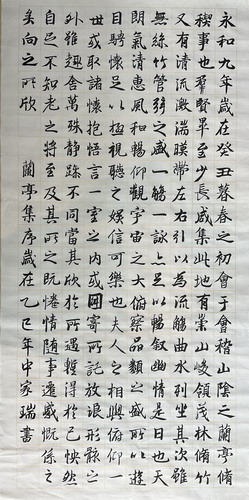 永和九年歲在癸丑暮春之初會于會稽山陰之蘭亭脩
禊事也羣賢畢至少長咸集此地有崇山峻領茂林脩竹
又有清流激湍暎帶左右引以為流觴曲水列坐其次雖
無絲竹管弦之盛一觴一詠亦足以暢敘幽情是日也天
朗氣清惠風和暢仰觀宇宙之大俯察品類之盛所以遊
目騁懷足以極視聽之娛信可樂也夫人之相與俯仰一
世或取諸懷抱悟言一室之內或因寄所託放浪形骸之
外雖趣舍萬殊靜躁不同當其欣於所遇暫得於己怏然
自足不知老之將至及其所之既惓情隨事遷感慨係之
矣向之所欣 蘭亭集序歲在乙巳年中家瑞書